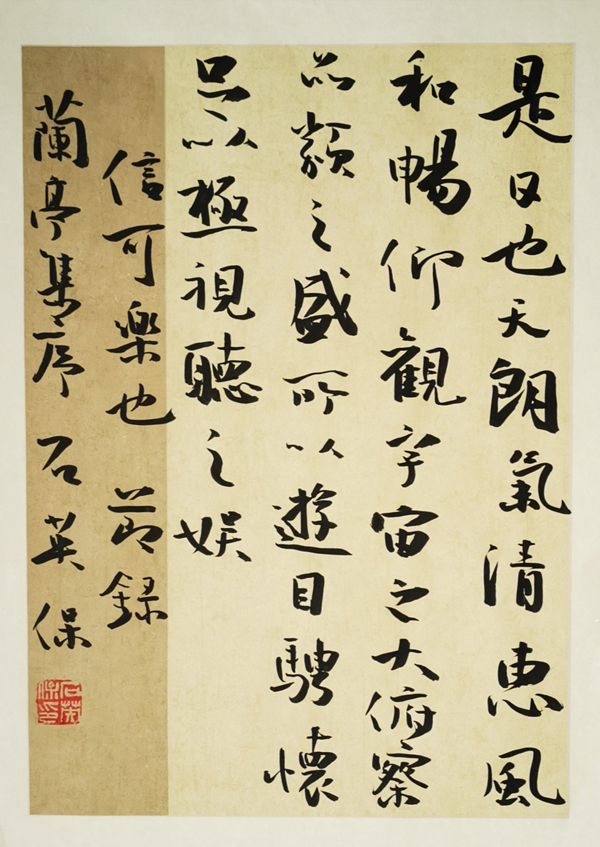 是日也天朗氣清惠風
和暢仰觀宇宙之大俯察
品類之盛所以遊目騁懷
足以極視聽之娱
信可樂也 節録
蘭亭集序 石英保
石英保印